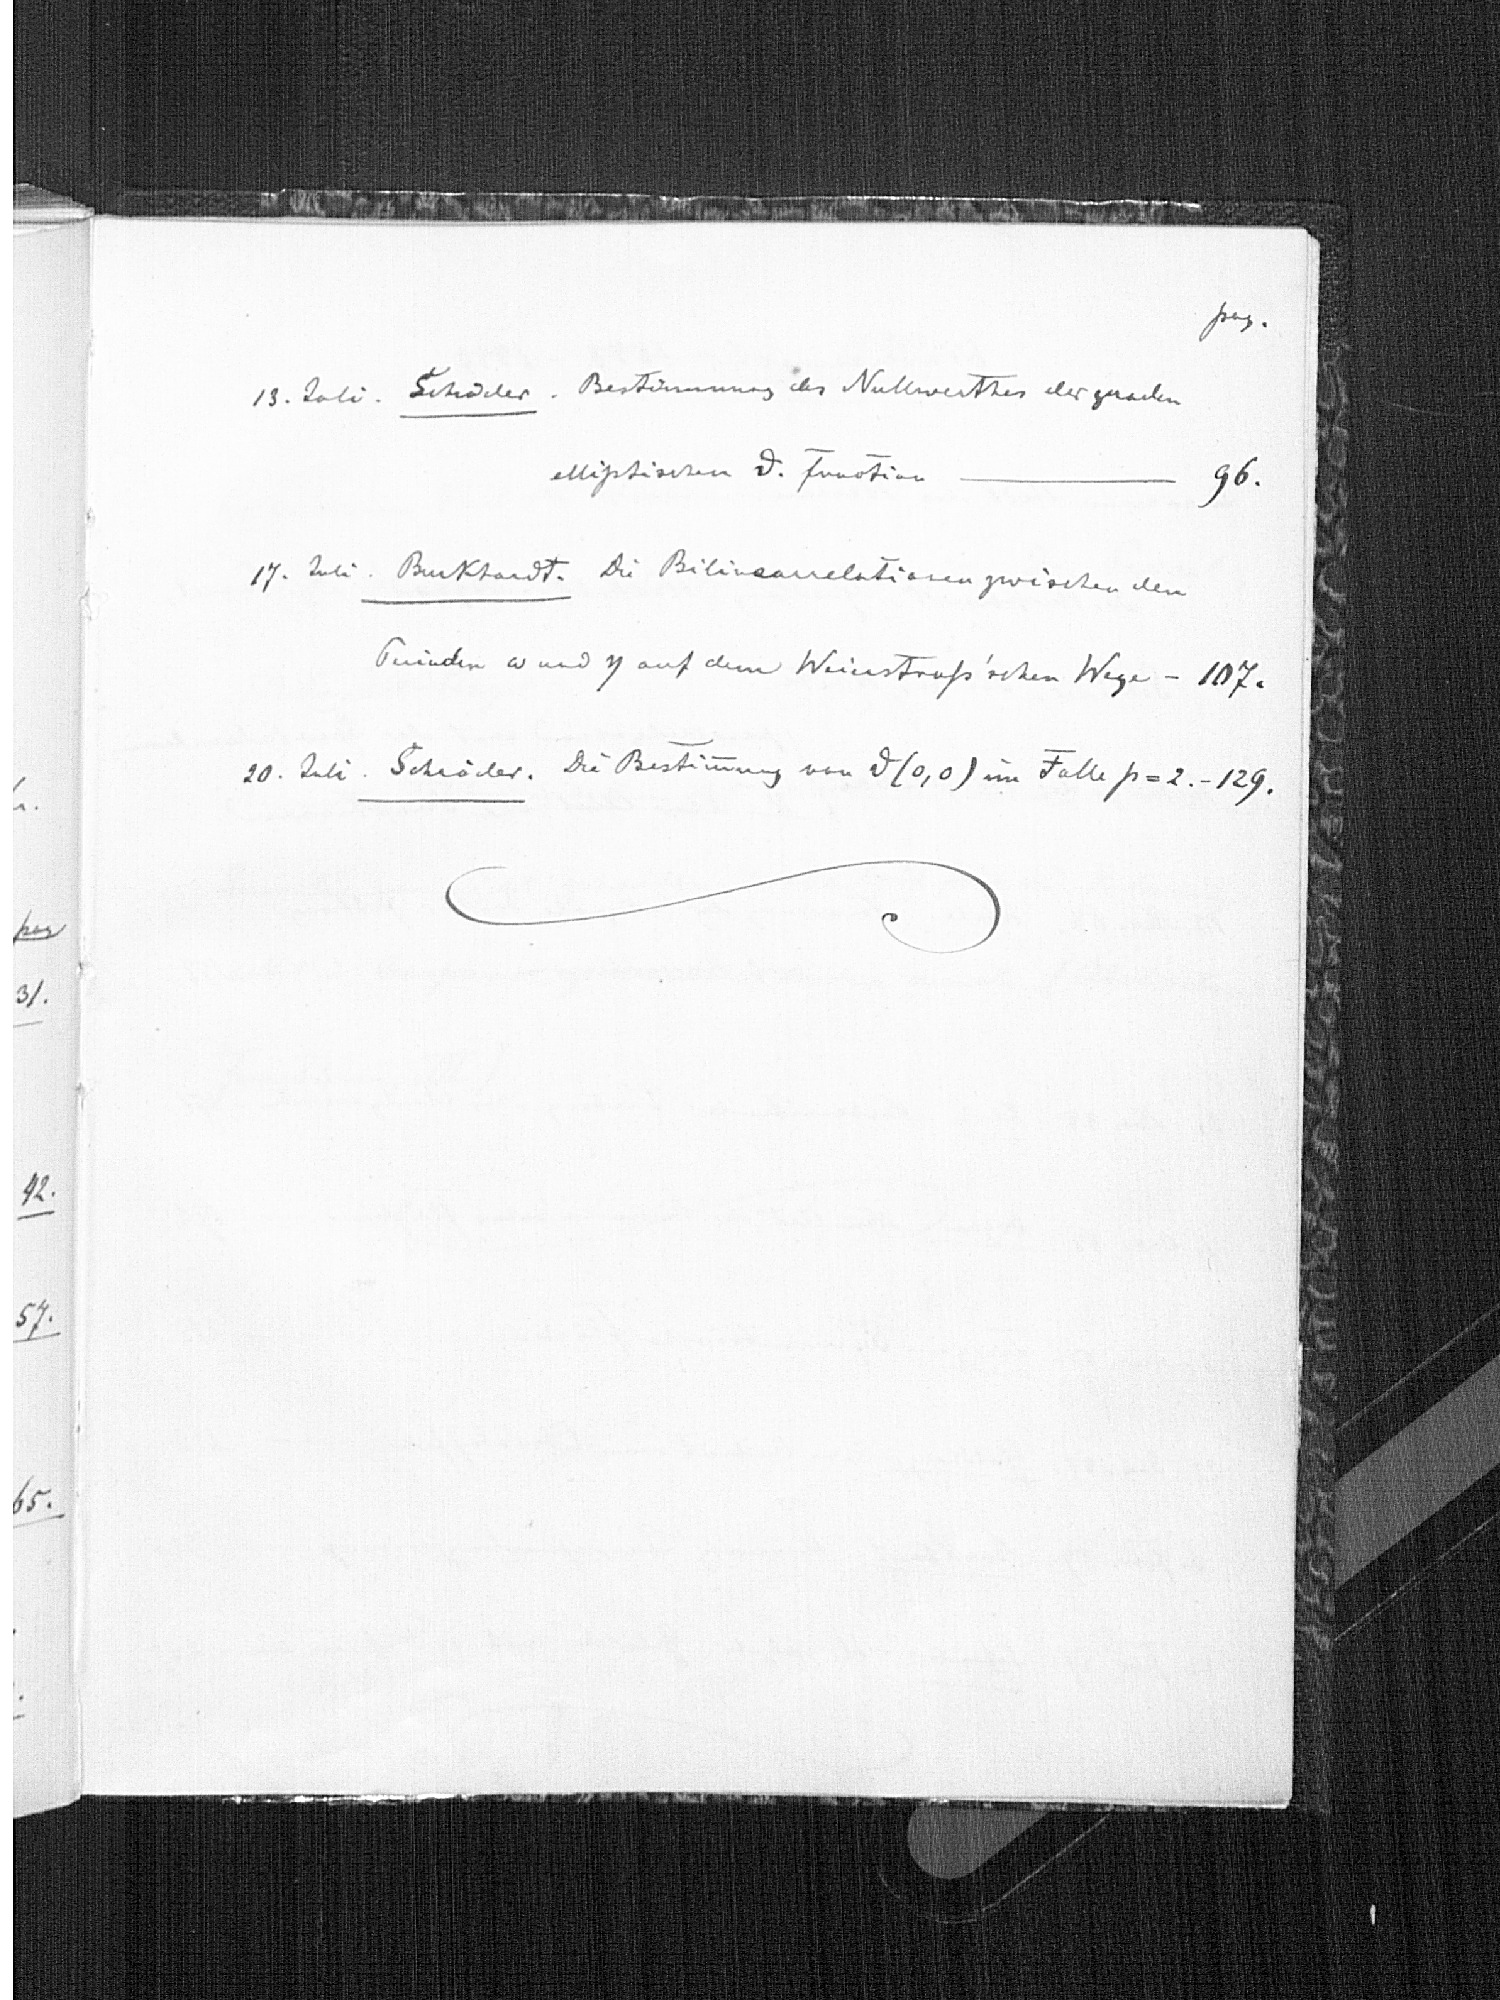 pag.
13. Juli. Schröder. Bestimmung des Nullwerthes der geraden
elliptischen ϑ. Function — 96.
17. Juli. Burkhardt. Die Bilinearrelationen zwischen den
Perioden ω und η auf dem Weierstraß'schen Wege – 107.
20. Juli. Schröder. Die Bestim̄ung von ϑ(0,0) im Falle p = 2. – 129.
pag
31.
42.
57.
65.